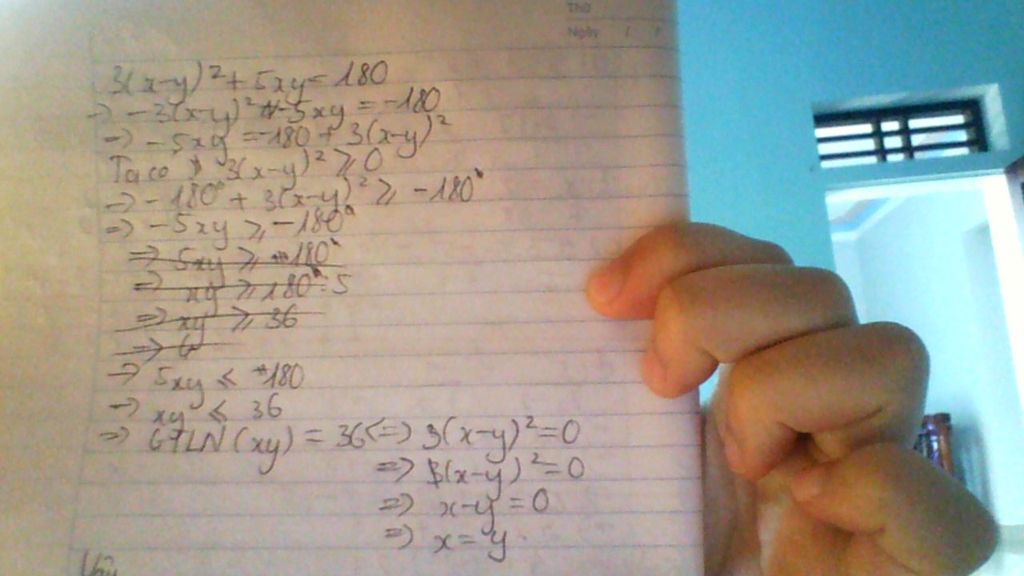 Thứ
Ngày / /
3(x-y)²+5xy=180
→ -3(x-y)²-5xy=-180
=> -5xy=-180+3(x-y)²
Ta có 3(x-y)²≥0
=> -180+3(x-y)²≥-180
=> -5xy≥-180
=> 5xy≥180
=> xy≥180:5
=> xy≥36
=>
→ 5xy≤180
→ xy≤36
=> GTLN(xy)=36<=>3(x-y)²=0
=> (x-y)²=0
=> x-y=0
=> x=y
Vậy